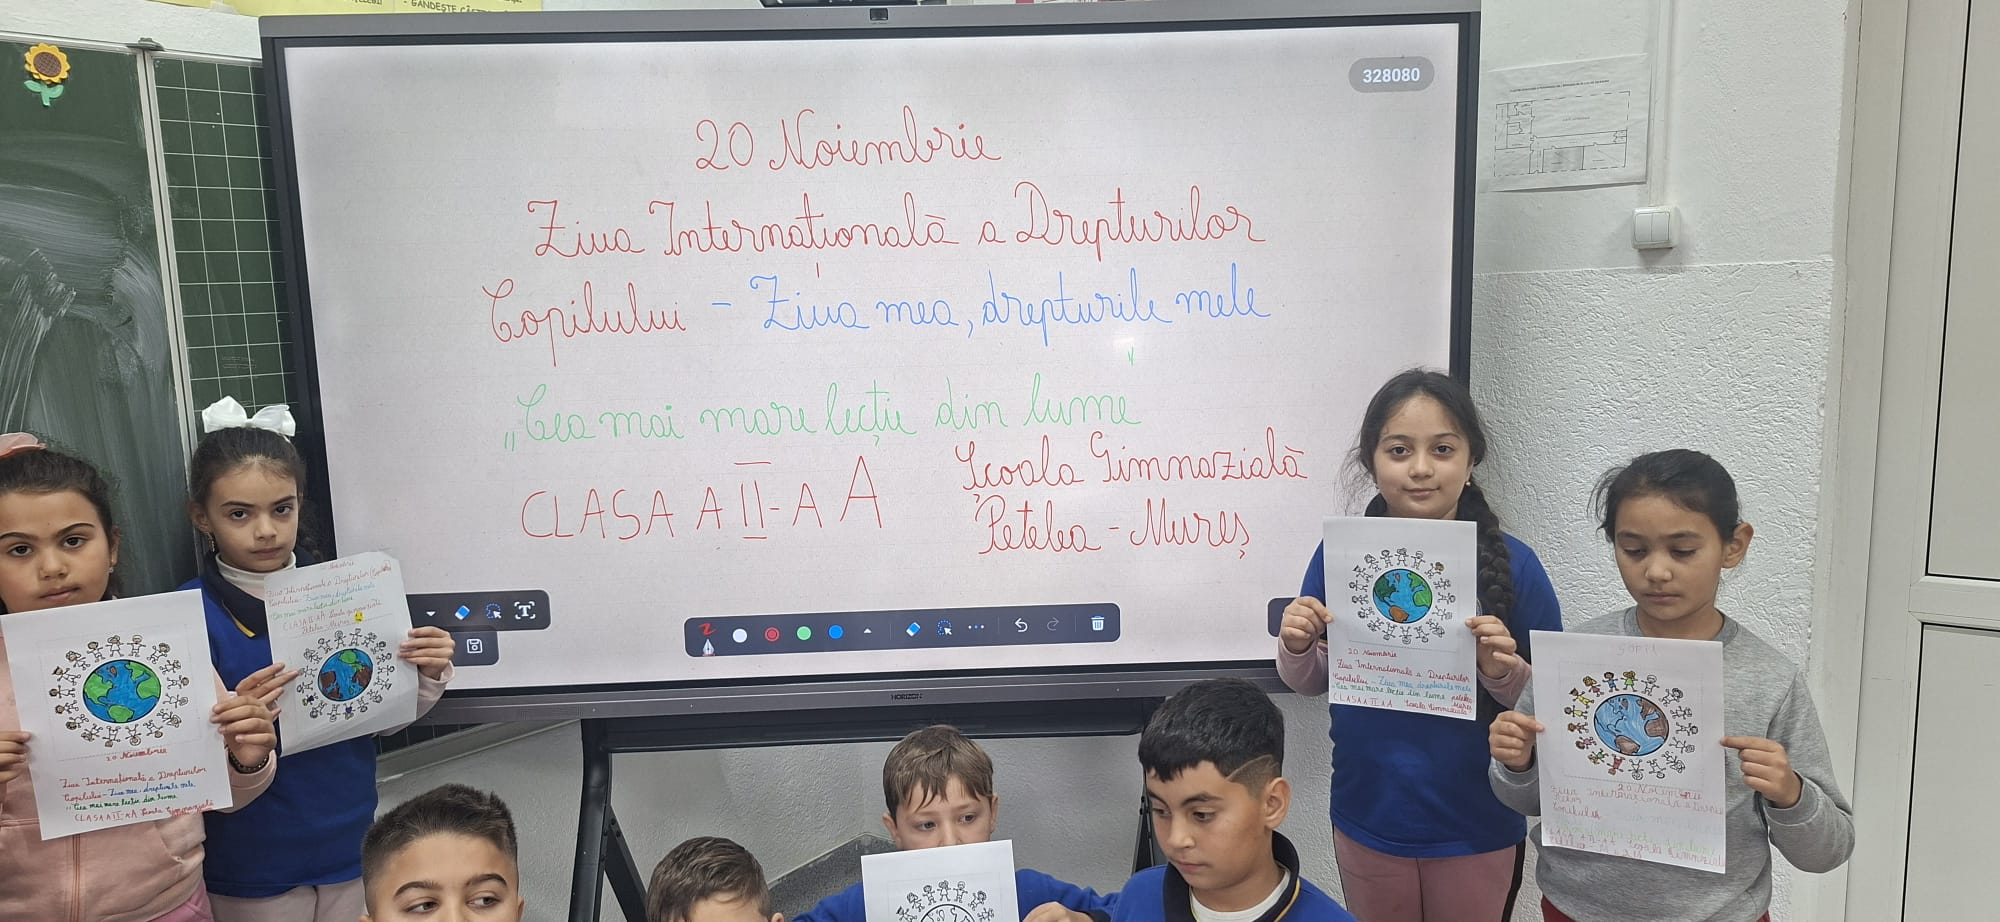 - GÂNDEȘTE
328080
20 Noiembrie
Ziua Internațională a Drepturilor
Copilului - Ziua mea, drepturile mele
„Cea mai mare lecție din lume"
CLASA A II-A A
Școala Gimnazială
Petelea - Mureș
HORIZON
20 Noiembrie
Ziua Internațională a Drepturilor
Copilului - Ziua mea, drepturile mele
„Cea mai mare lecție din lume
CLASA A II-A A Școala Gimnazială
Noiembrie
Ziua Internațională a Drepturilor
Copilului - Ziua mea, drepturile mele
Cea mai mare lecție din lume
CLASA A II-A A Școala Gimnazială
Petelea - Mureș
20 Noiembrie
Ziua Internațională a Drepturilor
Copilului - Ziua mea drepturile mele
„Cea mai mare lecție din lume Petelea
Mureș
CLASA A II-A A Școala Gimnazială
20 Noiembrie
Ziua Internațională a
Copilului
CLASA A II-A A Școala Gimnazială